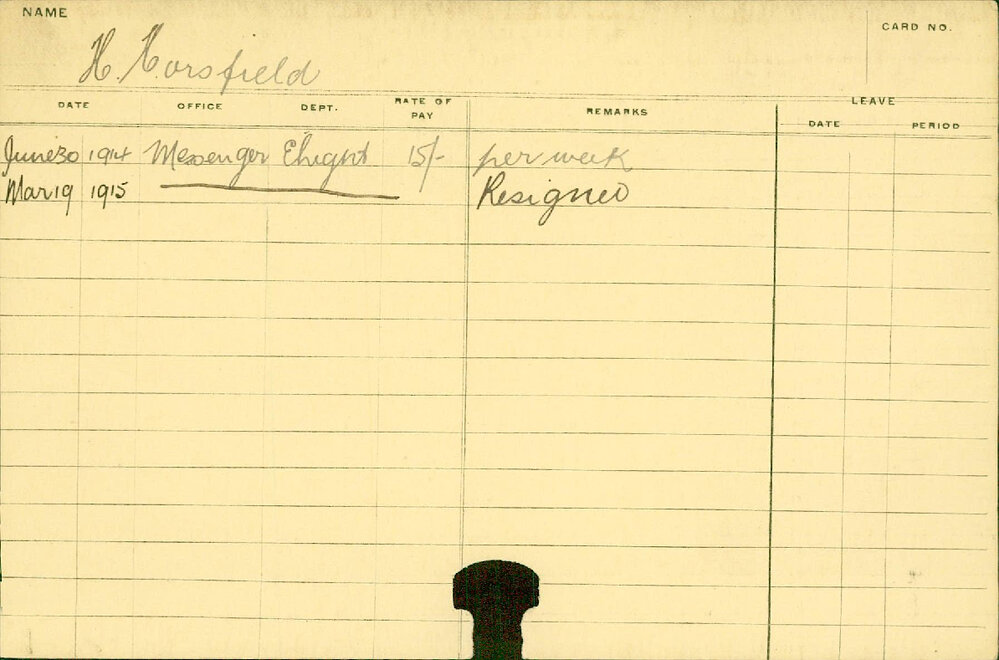 NAME
CARD NO.
H. Horsfield
DATE OFFICE DEPT. RATE OF PAY REMARKS LEAVE
DATE PERIOD
June 30 1914 Messenger Elight 15/- per week
Mar 19 1915 Resigned